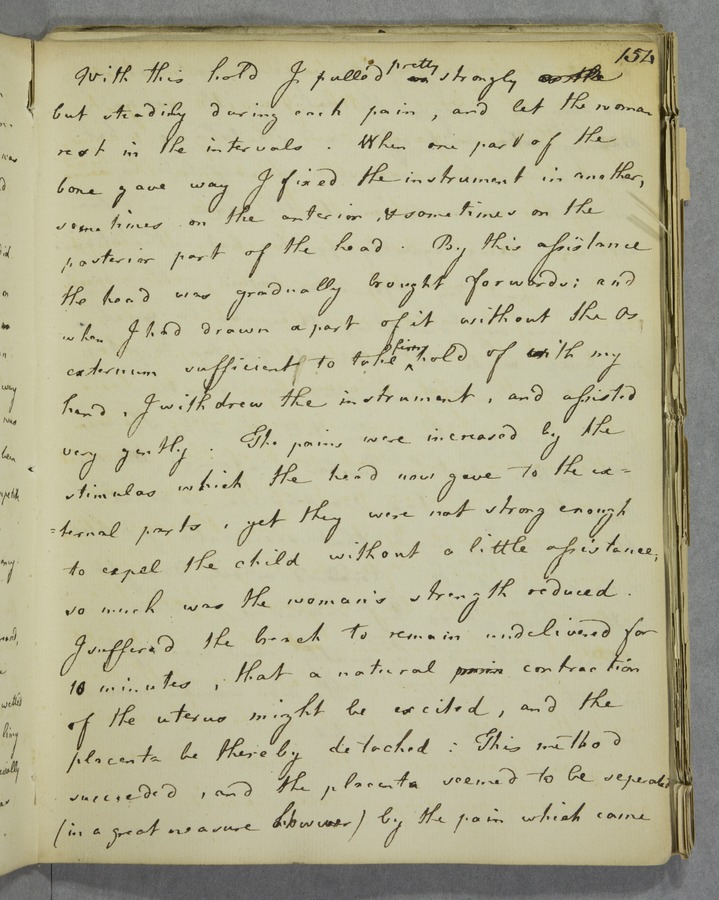 154
With this hold I pulled pretty strongly
but steadily during each pain, and let the woman
rest in the intervals. When one part of the
bone gave way I fixed the instrument in another,
sometimes on the anterior, & sometimes on the
posterior part of the head. By this assistance
the head was gradually brought forwards; and
when I had drawn a part of it without the Os
externum sufficient to take firm hold of with my
hand, I withdrew the instrument, and assisted
very gently. The pains were increased by the
stimulus which the head now gave to the ex=
=ternal parts, yet they were not strong enough
to expel the child without a little assistance;
so much was the woman's strength reduced.
I suffered the breech to remain undelivered for
10 minutes, that a natural contraction
of the uterus might be excited, and the
placenta be thereby detached: This method
succeeded, and the placenta seemed to be seperated
(in a great measure however) by the pain which came